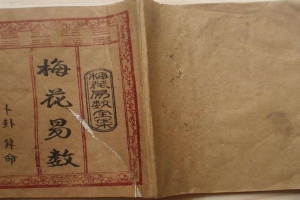 梅花易数
梅花易数全集
卜卦算命